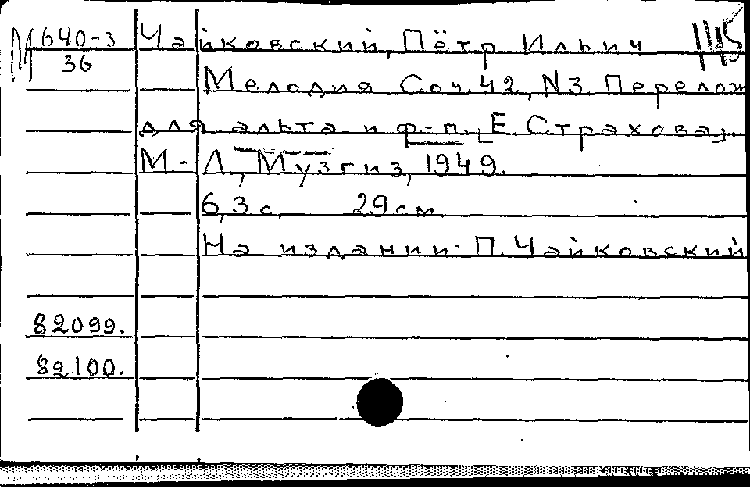 М 640-3 Чайковский, Пётр Ильич 145
36 Мелодия Соч. 42, N3. Перелож
для альта и ф.-п. [Е. Страхова]
М.-Л., Музгиз, 1949.
6,3 с. 29 см.
На издании: П. Чайковский
82099.
82100.